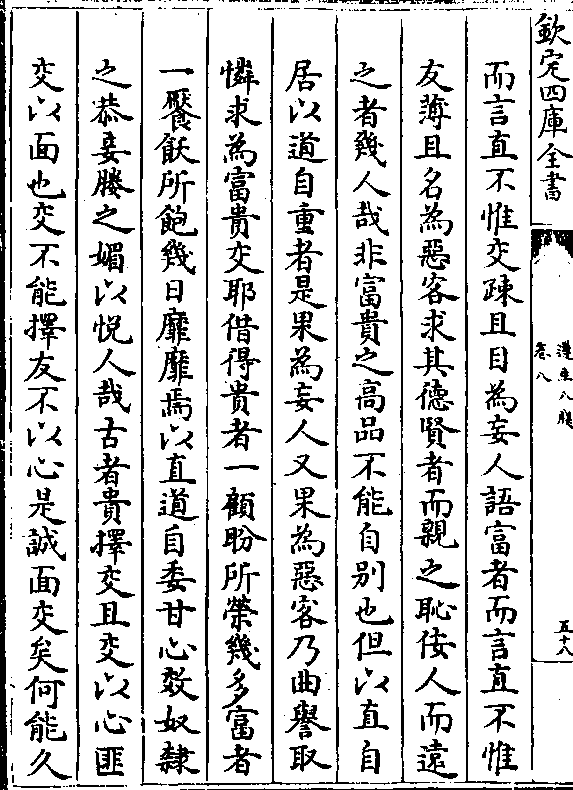 欽定四庫全書
遵生八牋
卷八
五十八
而言直不惟交疎且目為妄人語富者而言直不惟
友薄且名為惡客求其德賢者而親之恥佞人而遠
之者幾人哉非富貴之高品不能自别也但以直自
居以道自重者是果為妄人又果為惡客乃曲譽取
憐求為富貴交耶借得貴者一顧盼所榮幾多富者
一饜飫所飽幾日靡靡焉以直道自委甘心效奴隸
之恭妾媵之媚以悅人哉古者貴擇交且交以心匪
交以面也交不能擇友不以心是誠面交矣何能久